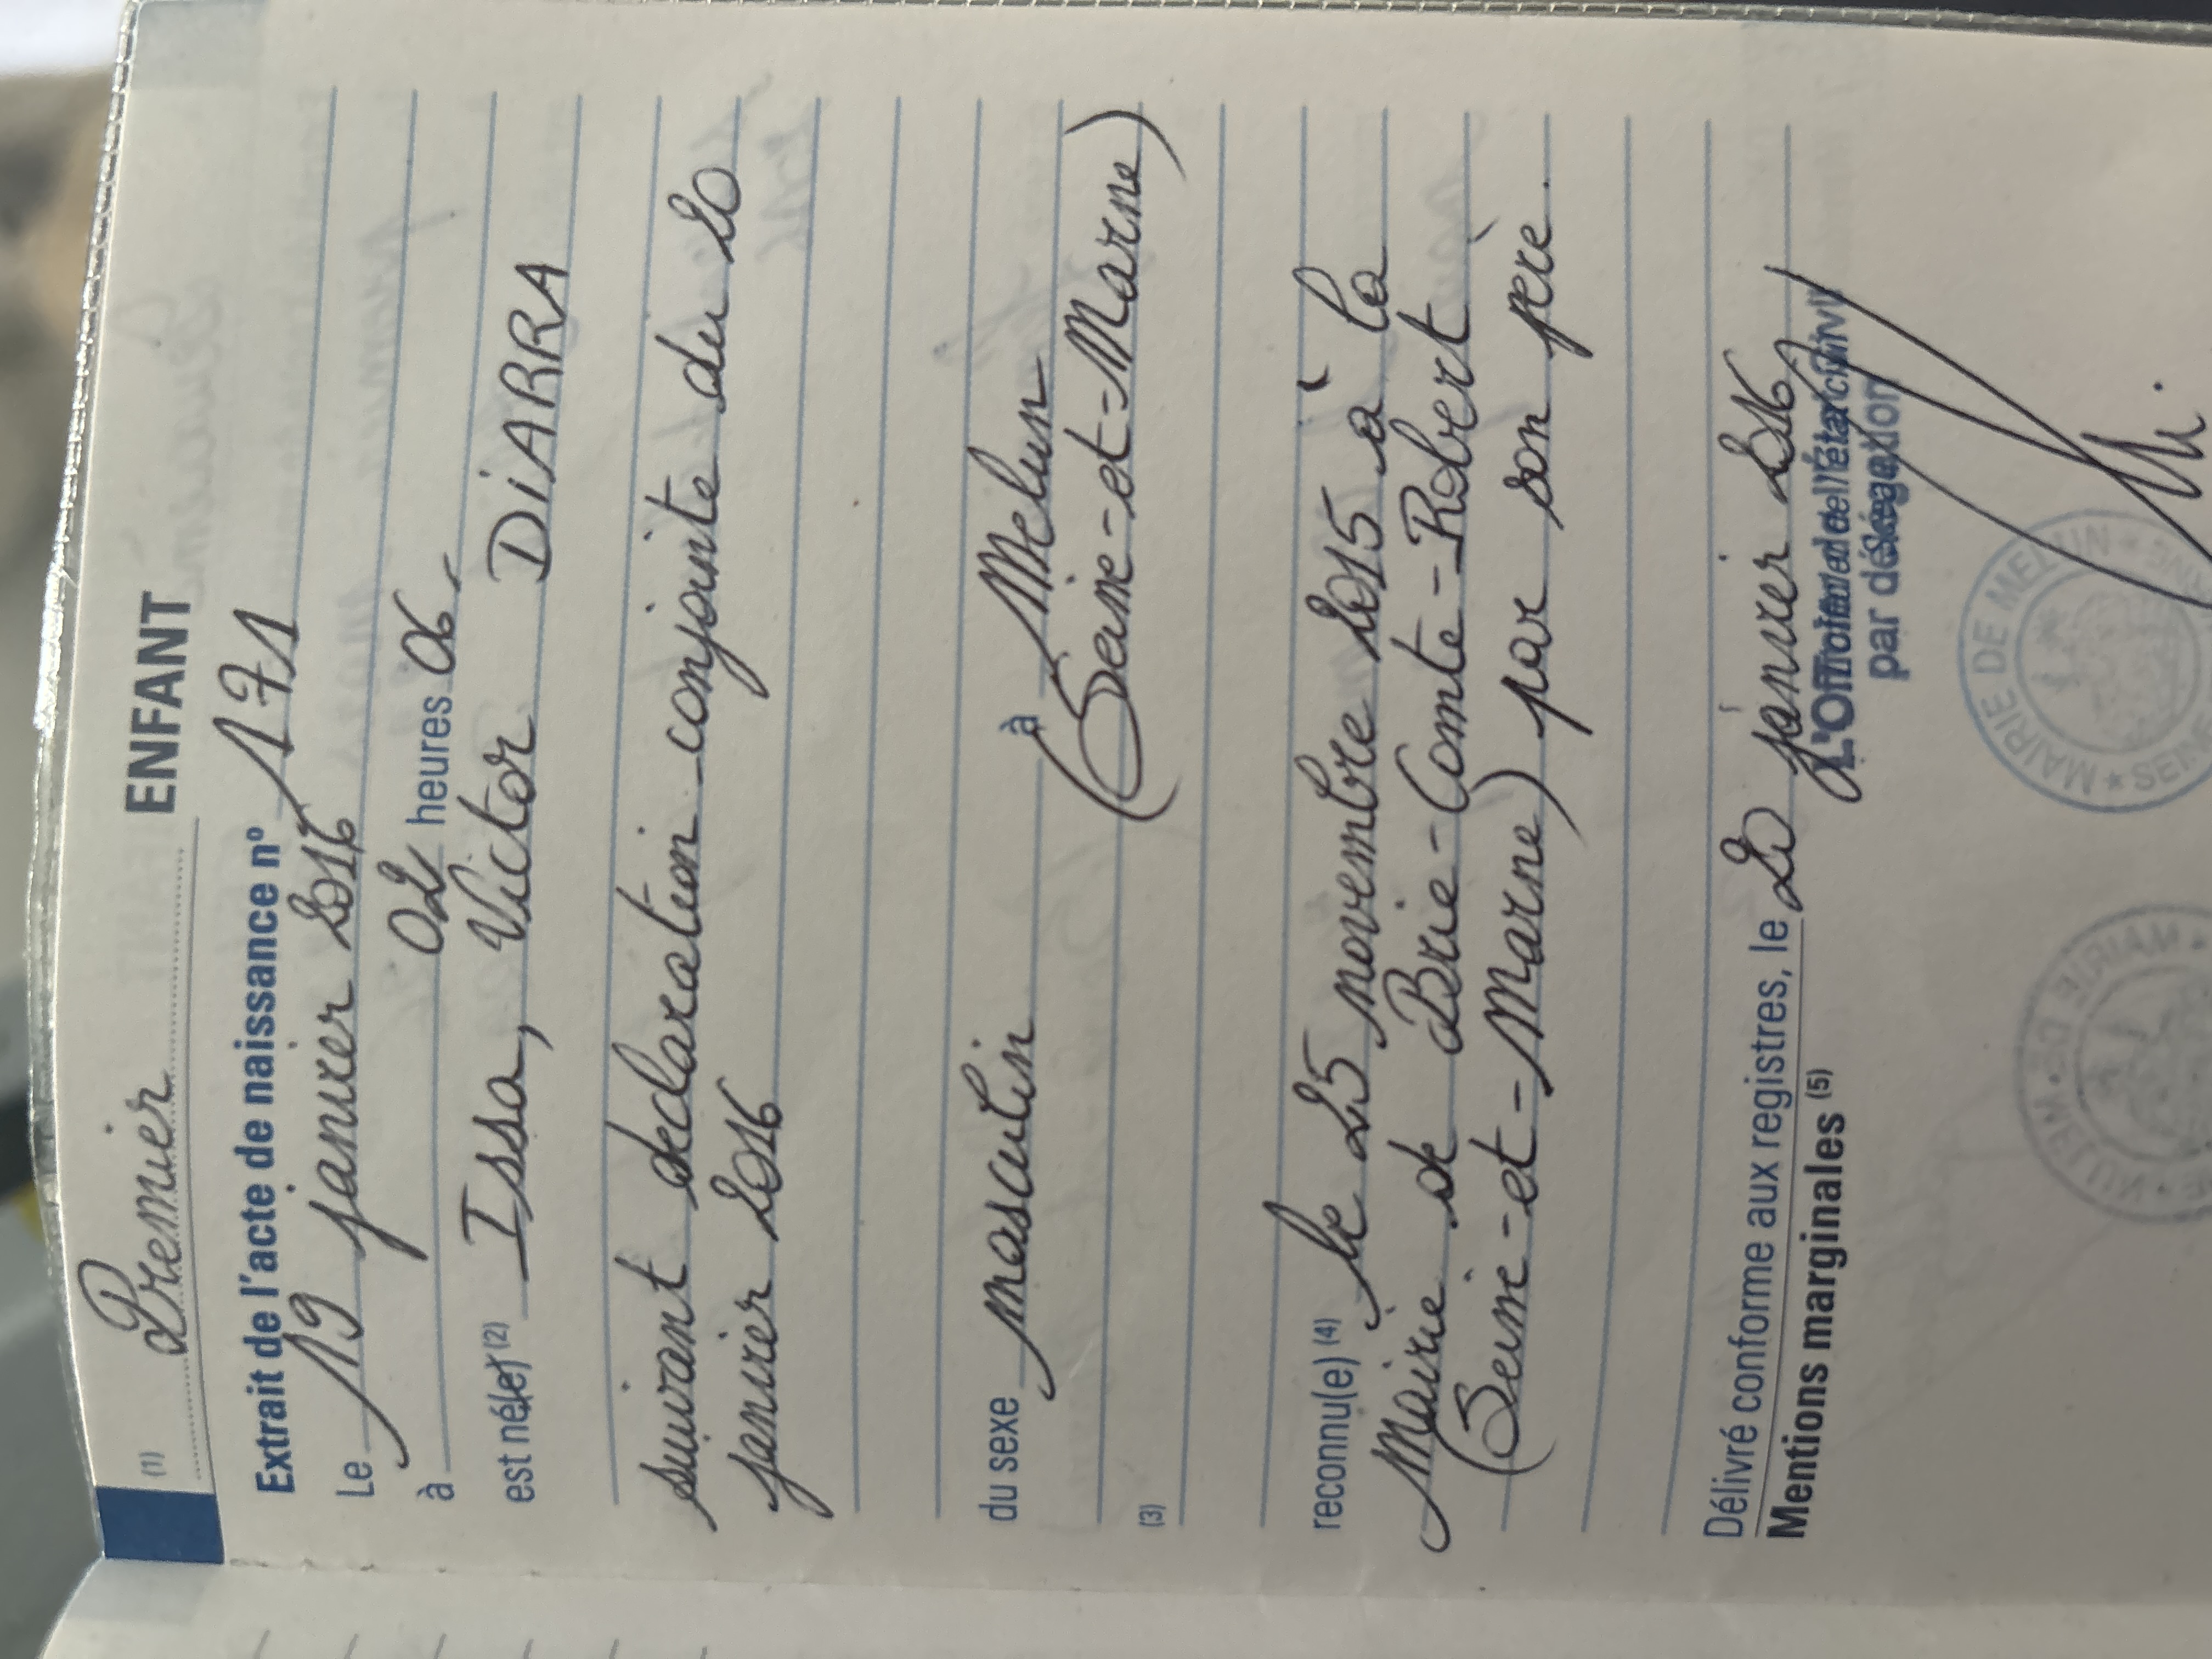 (1) Premier ENFANT
Extrait de l'acte de naissance n° 171
Le 19 janvier 2016
à 02 heures 06
est né(e) (2) Issa, Victor DIARRA
suivant déclaration conjointe du 20
janvier 2016
du sexe masculin à Melun
(3) (Seine-et-Marne)
reconnu(e) (4) le 25 novembre 2015 à la
Mairie de Brie-Comte-Robert
(Seine-et-Marne) par son père.
Délivré conforme aux registres, le 20 janvier 2016
Mentions marginales (5)
L'Officier de l'état civil
par délégation
MAIRIE DE MELUN
MAIRIE DE MELUN